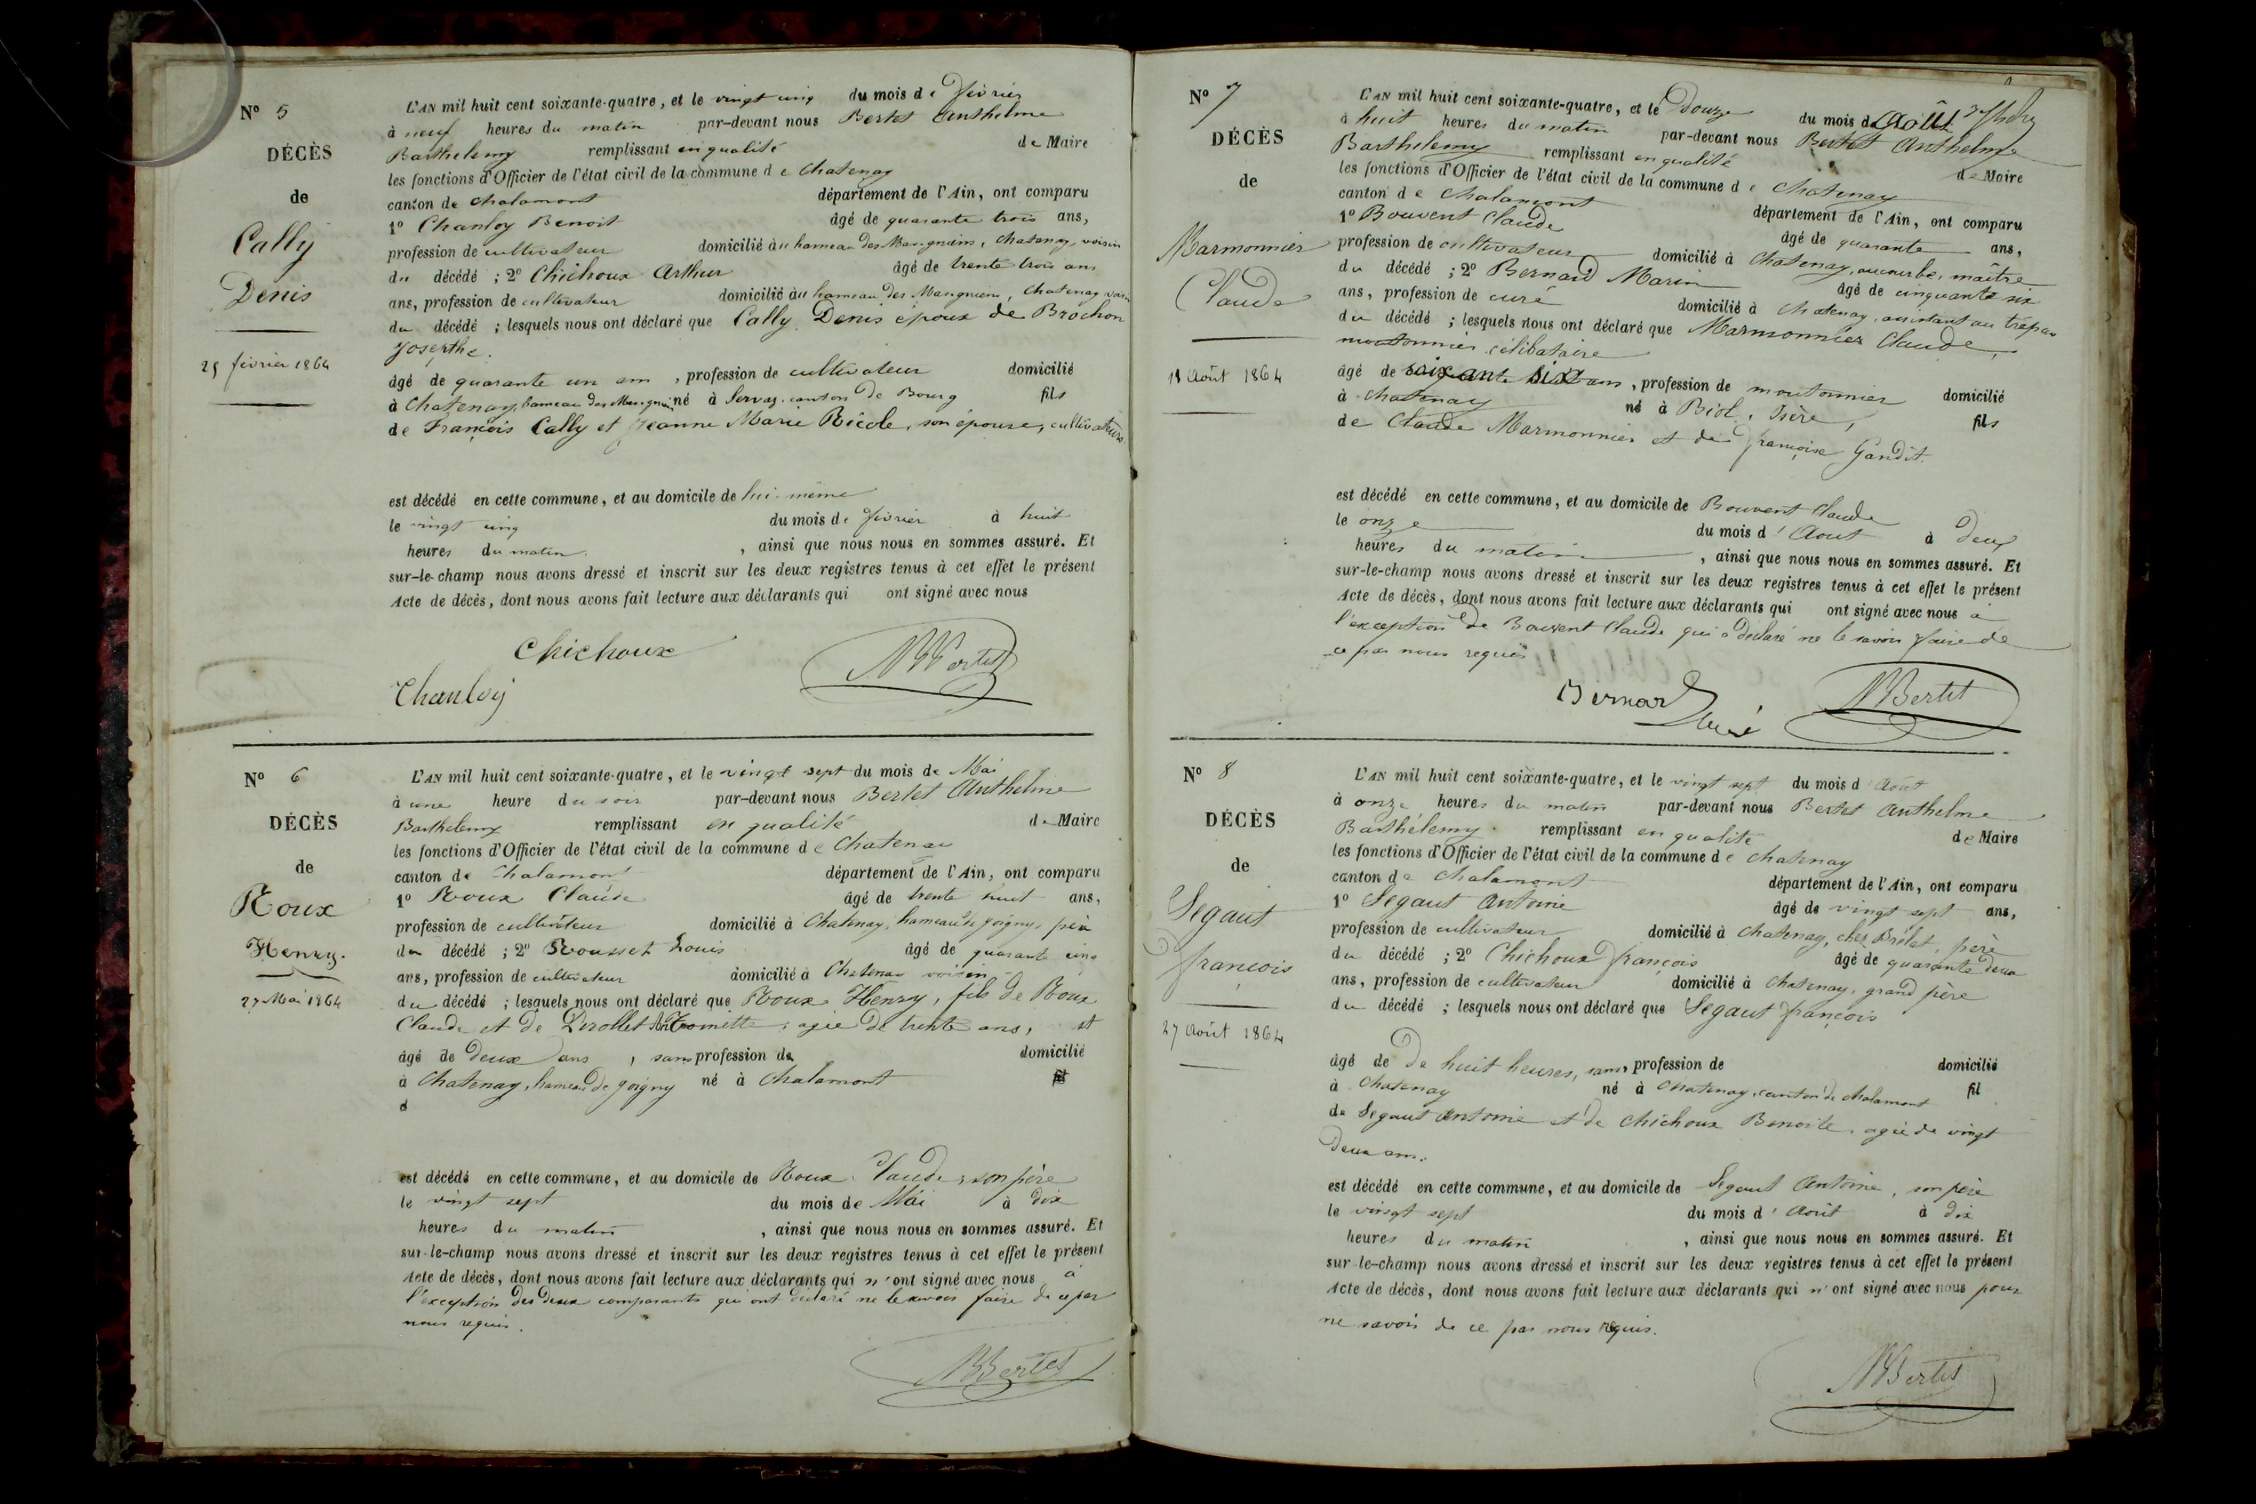 N° 5
DÉCÈS
de
Cally
Denis
25 février 1864
L'AN mil huit cent soixante-quatre, et le vingt cinq du mois de février
à neuf heures du matin par-devant nous Bertet Anthelme
Barthelemy remplissant en qualité de Maire
les fonctions d'Officier de l'état civil de la commune de Chatenay
canton de Chalamont département de l'Ain, ont comparu
1° Chanloy Benoit âgé de quarante trois ans,
profession de cultivateur domicilié au hameau des Mangniens, Chatenay, voisin
du décédé ; 2° Chichoux Arthur âgé de trente trois ans
ans, profession de cultivateur domicilié au hameau des Mangniens, Chatenay voisin
du décédé ; lesquels nous ont déclaré que Cally Denis époux de Brochon
Josepthe.
âgé de quarante un ans, profession de cultivateur domicilié
à Chatenay, hameau des Mangniens né à Servas, canton de Bourg fils
de François Cally et Jeanne Marie Ricole, son épouse, cultivateurs
est décédé en cette commune, et au domicile de lui-même
le vingt cinq du mois de février à huit
heures du matin, ainsi que nous nous en sommes assuré. Et
sur-le-champ nous avons dressé et inscrit sur les deux registres tenus à cet effet le présent
Acte de décès, dont nous avons fait lecture aux déclarants qui ont signé avec nous
Chichoux
Chanloy
Bertet
N° 6
DÉCÈS
de
Roux
Henry.
27 Mai 1864
L'AN mil huit cent soixante-quatre, et le vingt sept du mois de Mai
à une heure du soir par-devant nous Bertet Anthelme
Barthelemy remplissant en qualité de Maire
les fonctions d'Officier de l'état civil de la commune de Chatenay
canton de Chalamont département de l'Ain, ont comparu
1° Roux Claude âgé de trente huit ans,
profession de cultivateur domicilié à Chatenay, hameau de goigny, père
du décédé ; 2° Rousset Louis âgé de quarante cinq
ans, profession de cultivateur domicilié à Chatenay voisin
du décédé ; lesquels nous ont déclaré que Roux Henry, fils de Roux
Claude et de Dérollet Antoinette, agée de trente ans, et
âgé de deux ans, sans profession de domicilié
à Chatenay, hameau de goigny né à Chalamont fil
d
est décédé en cette commune, et au domicile de Roux Claude, son père
le vingt sept du mois de Mai à dix
heures du matin, ainsi que nous nous en sommes assuré. Et
sur-le-champ nous avons dressé et inscrit sur les deux registres tenus à cet effet le présent
Acte de décès, dont nous avons fait lecture aux déclarants qui n'ont signé avec nous à
l'exception des deux comparants qui ont déclaré ne le savoir faire de ce par
nous requis.
Bertet
N° 7
DÉCÈS
de
Marmonnier
Claude
11 Août 1864
L'AN mil huit cent soixante-quatre, et le Douze du mois d'Août
à huit heures du matin par-devant nous Bertet Anthelme
Barthelemy remplissant en qualité de Maire
les fonctions d'Officier de l'état civil de la commune de Chatenay
canton de Chalamont département de l'Ain, ont comparu
1° Bouvent Claude âgé de quarante ans,
profession de cultivateur domicilié à Chatenay, maître
du décédé ; 2° Bernard Marin âgé de cinquante six
ans, profession de curé domicilié à Chatenay, assistant au trépas
du décédé ; lesquels nous ont déclaré que Marmonnier Claude,
moutonnier célibataire
âgé de soixante six ans, profession de moutonnier domicilié
à Chatenay né à Biol, Isère, fils
de Claude Marmonnier et de françoise Gandit
est décédé en cette commune, et au domicile de Bouvent Claude
le onze du mois d'Aout à deux
heures du matin, ainsi que nous nous en sommes assuré. Et
sur-le-champ nous avons dressé et inscrit sur les deux registres tenus à cet effet le présent
Acte de décès, dont nous avons fait lecture aux déclarants qui ont signé avec nous à
l'exception de Bouvent Claude qui a déclaré ne le savoir faire de
ce par nous requis
Bernard
curé
Bertet
N° 8
DÉCÈS
de
Segaut
françois
27 Août 1864
L'AN mil huit cent soixante-quatre, et le vingt sept du mois d'Août
à onze heures du matin par-devant nous Bertet Anthelme
Barthélemy remplissant en qualité de Maire
les fonctions d'Officier de l'état civil de la commune de Chatenay
canton de Chalamont département de l'Ain, ont comparu
1° Segaut Antoine âgé de vingt sept ans,
profession de cultivateur domicilié à Chatenay, chez Brélat, père
du décédé ; 2° Chichoux françois âgé de quarante deux
ans, profession de cultivateur domicilié à Chatenay, grand père
du décédé ; lesquels nous ont déclaré que Segaut françois
âgé de De huit heures, sans profession de domicilié
à Chatenay né à Chatenay, canton de Chalamont fil
de Segaut Antoine et de Chichoux Benoite, agée de vingt
Deux ans.
est décédé en cette commune, et au domicile de Segaut Antoine, son père
le vingt sept du mois d'Août à dix
heures du matin, ainsi que nous nous en sommes assuré. Et
sur-le-champ nous avons dressé et inscrit sur les deux registres tenus à cet effet le présent
Acte de décès, dont nous avons fait lecture aux déclarants qui n'ont signé avec nous pour
ne savoir de ce par nous requis.
Bertet